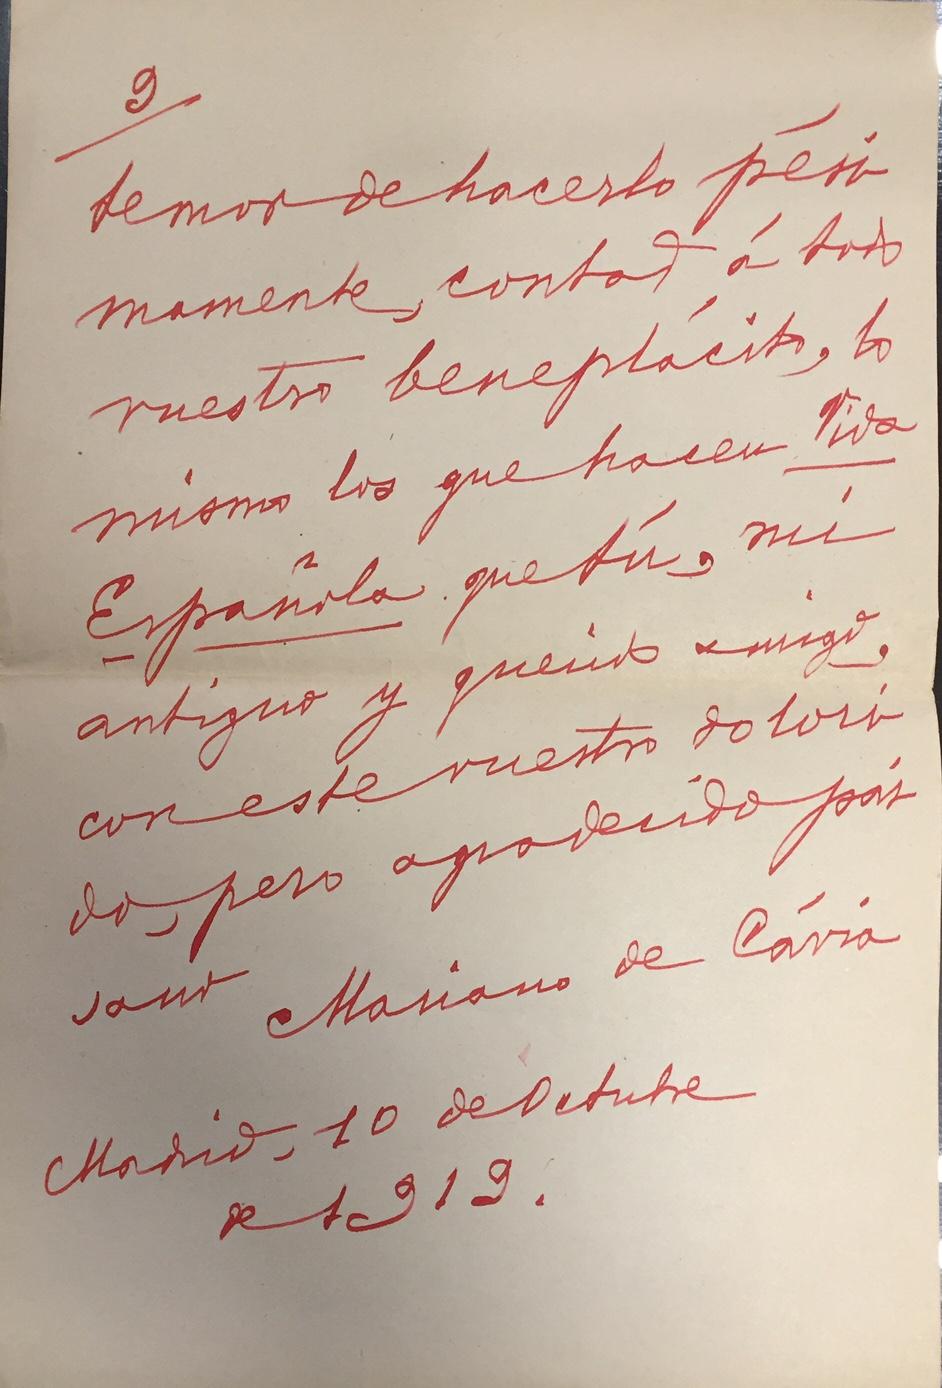 9
temor de hacerlo pési
mamente, contad á todo
vuestro beneplácito, lo
mismo los que hacen Vida
Española que tú, mi
antiguo y querido amigo,
con este vuestro dolori
do, pero agradecido pai
sano Mariano de Cávia
Madrid, 10 de Octubre
de 1919.